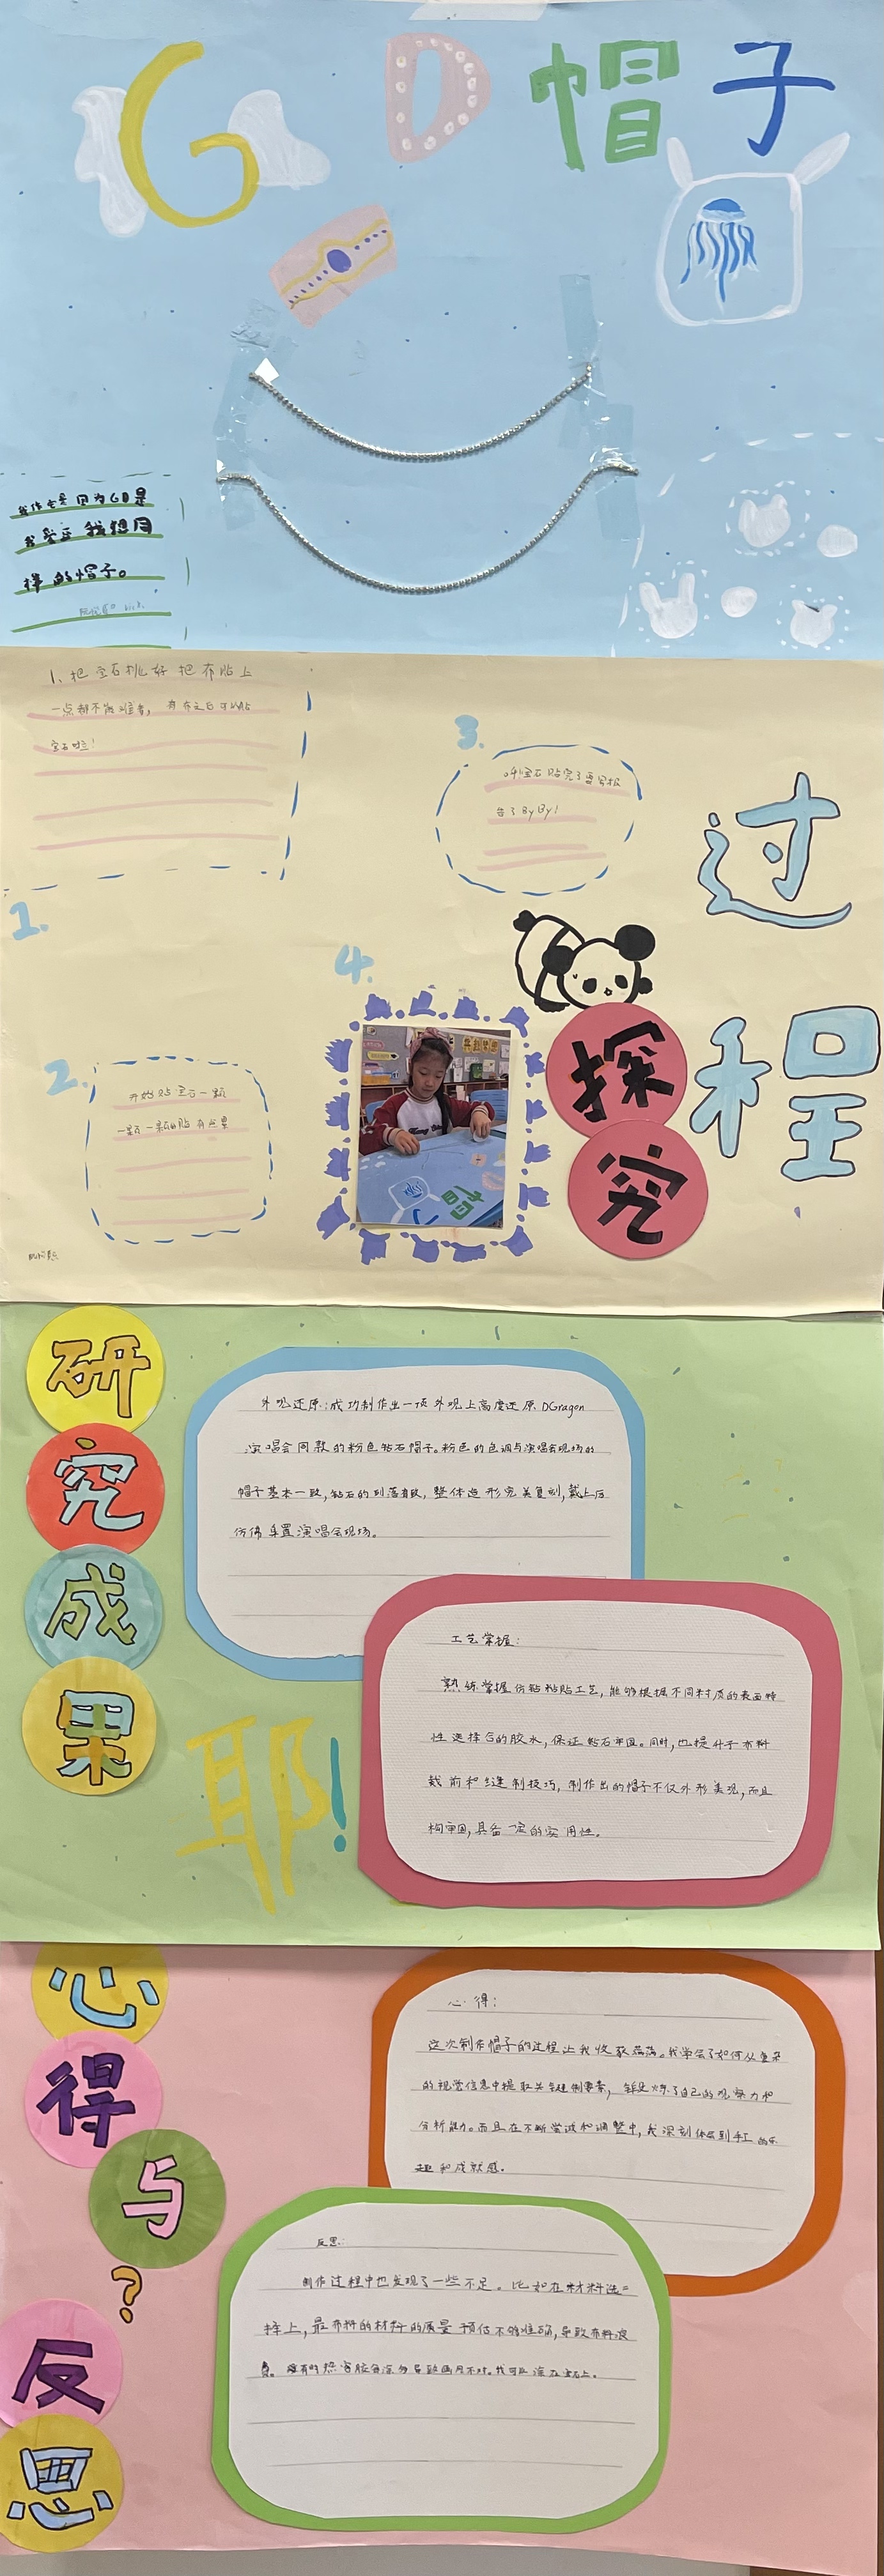 GD帽子
我作主是因为GD是
我爱豆 我想同
样的帽子。
1、把宝石挑好 把布贴上
一点都不能准备，有布之后可以贴
宝石啦！
1.
2.
开始贴宝石一颗
一颗一颗的贴 有点累
3.
oh!宝石贴完了要写报
告了ByBy!
4.
探究
过程
研究成果
外观还原：成功制作出一顶外观上高度还原DGragon
演唱会同款的粉色钻石帽子。粉色的色调与演唱会现场的
帽子基本一致，钻石的列落有致，整体造形完美复刻，戴上后
仿佛置演唱会现场。
工艺掌握：
熟练掌握仿钻粘贴工艺，能够根据不同材质的表面特
性选择合的胶水，保证钻石牢固。同时，也提升了布料
裁前和缝制技巧，制作出的帽子不仅外形美观，而且
构牢固，具备一定的实用性。
耶！
心得与？反思
心得：
这次制作帽子的过程让我收获满满。我学会了如何从复杂
的视觉信息中提取关键制要素，锻炼了自己的观察力和
分析能力。而且在不断尝试和调整中，我深刻体会到手工的乐
趣和成就感。
反思：
制作过程中也发现了一些不足。比如在材料选
择上，最布料的材料的质量预估不够准确，导致布料浪
费。